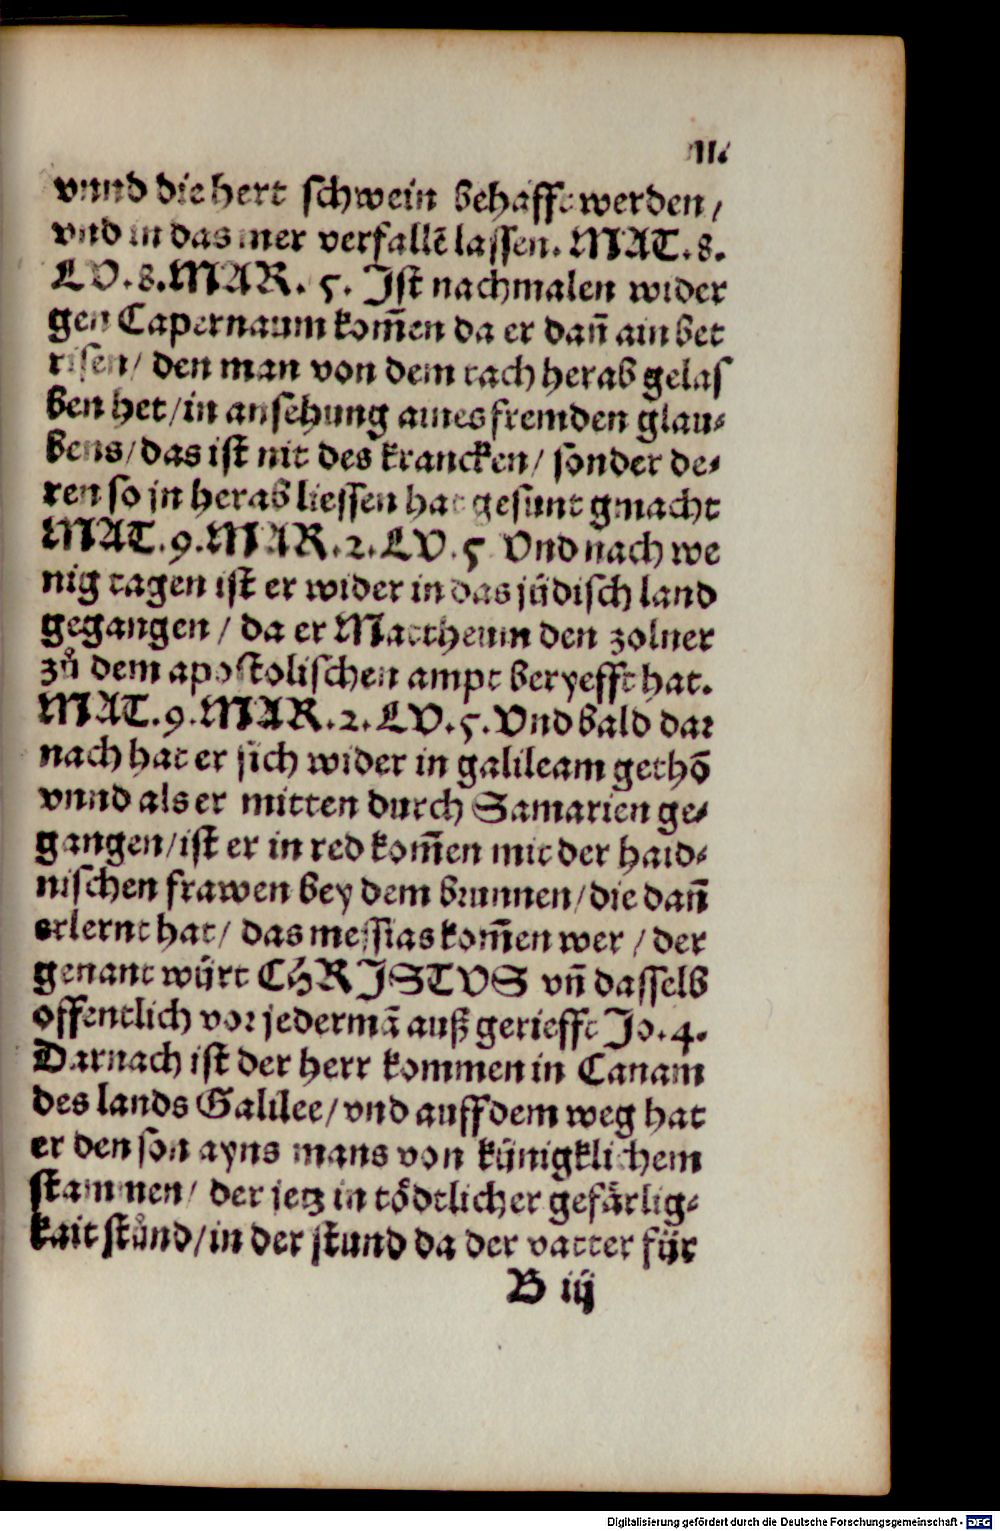 11.
vnnd die hert schwein behafft werden /
vnd in das mer verfallē lassen. MAT. 8.
LV. 8. MAR. 5. Ist nachmalen wider
gen Capernaum kom̄en da er dañ ain bet
risen / den man von dem tach herab gelas
sen het / in ansehung aines fremden glau⸗
bens / das ist nit des krancken / sonder de⸗
ren so jn herab liessen hat gesunt gmacht
MAT. 9. MAR. 2. LV. 5 Vnd nach we
nig tagen ist er wider in das jüdisch land
gegangen / da er Mattheum den zolner
zů dem apostolischen ampt beryefft hat.
MAT. 9. MAR. 2. LV. 5. Vnd bald dar
nach hat er sich wider in galileam gethō
vnnd als er mitten durch Samarien ge⸗
gangen / ist er in red kom̄en mit der haid⸗
nischen frawen bey dem brunnen / die dañ
erlernt hat / das messias kom̄en wer / der
genant würt CHRISTVS vñ dasselb
offentlich vor jedermā auß geriefft Jo. 4.
Darnach ist der herr kommen in Canam
des lands Galilee / vnd auff dem weg hat
er den son ayns mans von künigklichem
stammen / der jetz in tödtlicher gefärlig⸗
kait stůnd / in der stund da der vatter für
B iij
Digitalisierung gefördert durch die Deutsche Forschungsgemeinschaft - DFG